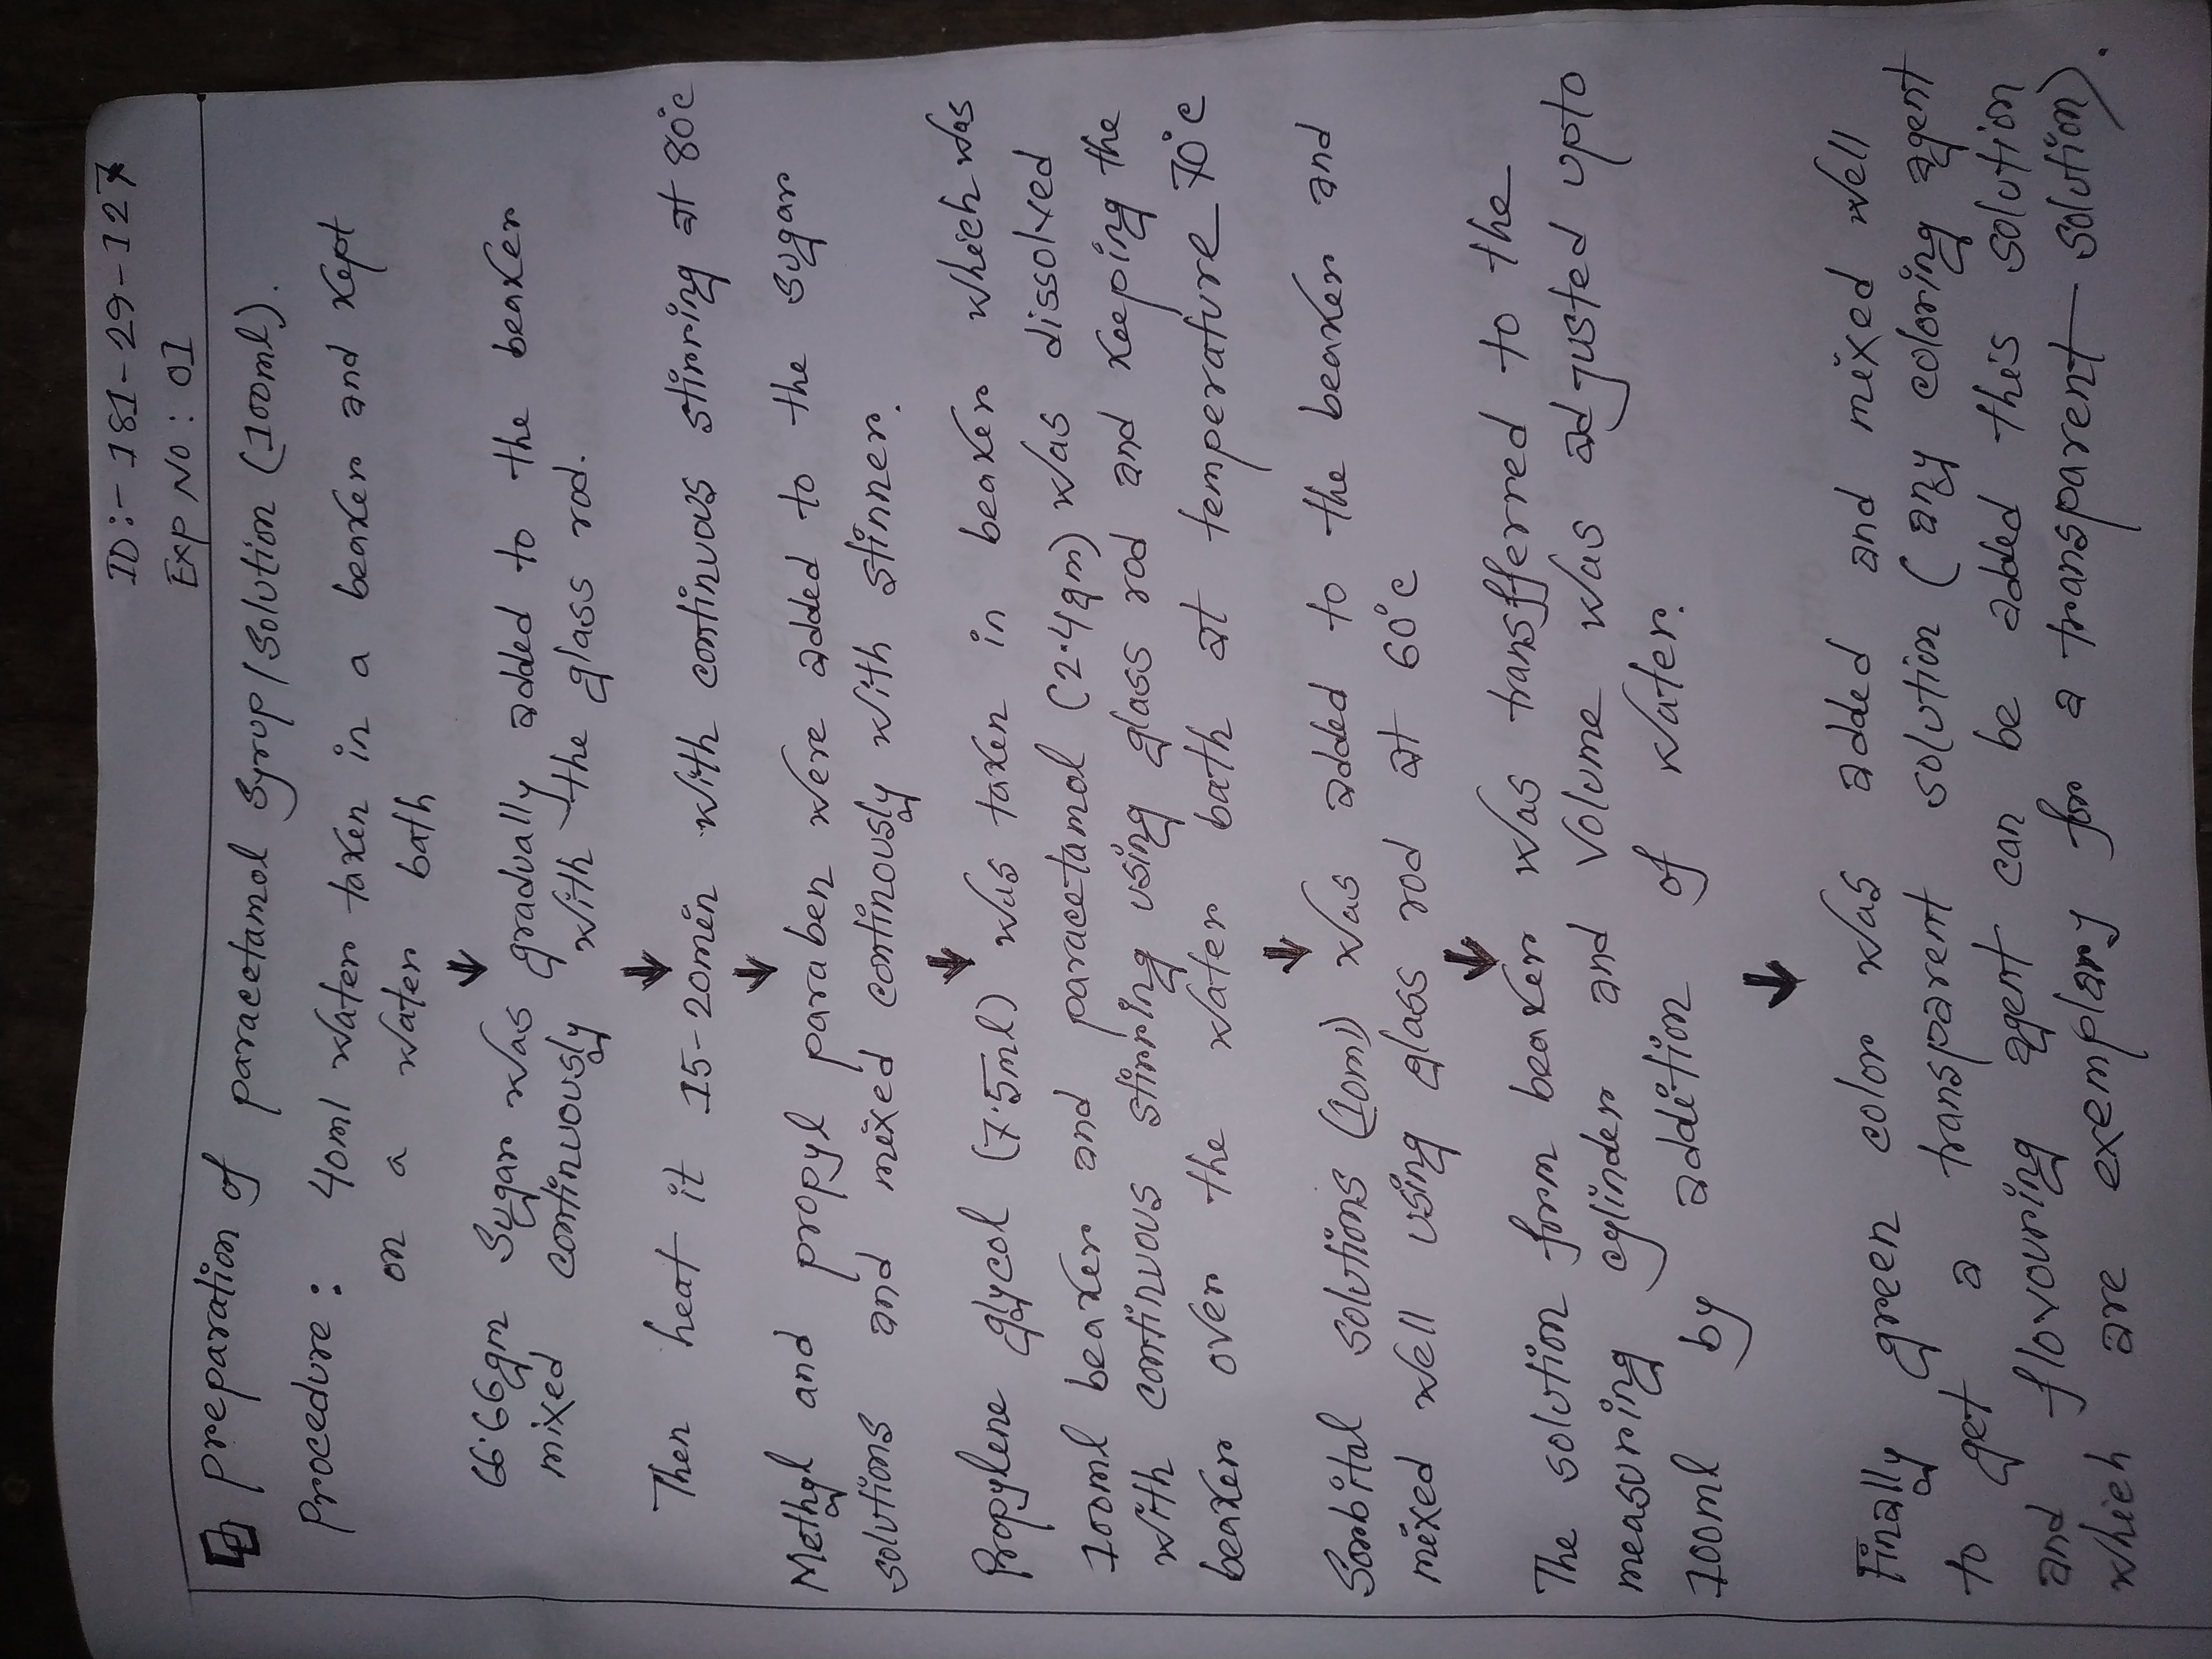 ID:- 181-29-127
Exp No: 01
preparation of paracetamol Syrup/Solution (100ml).
Procedure: 40ml Water taken in a beaker and kept
on a water bath
↓
66.66gm Sugar was gradually added to the beaker
mixed continuously with the glass rod.
↓
Then heat it 15-20min with continuous stirring at 80°c
↓
Methyl and propyl paraben were added to the sugar
solutions and mixed continously with stinner.
↓
Propylene glycol (7.5ml) was taken in beaker which was
100ml beaker and paracetamol (2.4gm) was dissolved
with continuous stirring using glass rod and keeping the
beaker over the water bath at temperature 70°c
↓
Sorbital solutions (10ml) was added to the beaker and
mixed well using glass rod at 60°c
↓
The solution form beaker was transfferred to the
measuring cylinder and volume was adjusted upto
100ml by addition of water.
↓
Finally green color was added and mixed well
to get a transparent solution (any coloring agent
and flovouring agent can be added this solution
which are exemplary for a transparent solution).